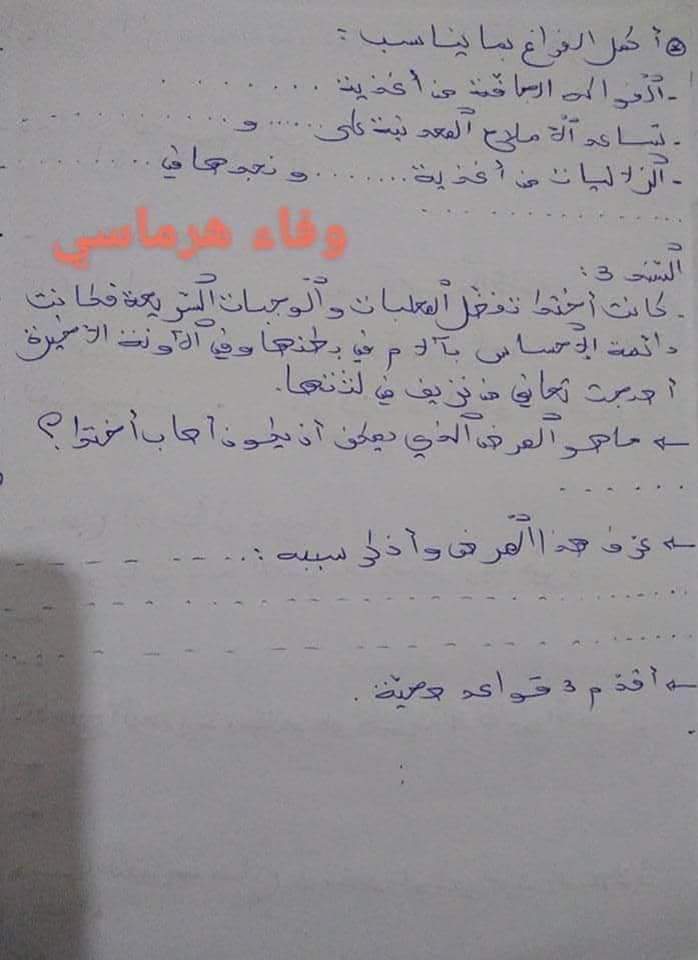 أكمل الفراغ بما يناسب :
- الفواكه الجافة من أغذية . . . . . . .
- تساعد الأملاح المعدنية على ...... و . . . . . . . . . . .
- الزلاليات من أغذية ........ ونجدها في . . . . . . . . .
. . . . . . . . . . .
وفاء هرماسي
السند 3 :
. كانت أختك تفضل المعلبات والوجبات السريعة فكانت
دائمة الإحساس بآلام في بطنها وفي الآونة الأخيرة
أصبحت تعاني من نزيف في لثتها.
← ما هو المرض الذي يمكن أن يكون أصاب أختك ؟
. . . . . .
← عرف هذا المرض وأذكر سببه : . . . . . . . . .
. . . . . . . . . . . . . . . . . . . . . . . .
. . . . . . . . . . . . . . . . . . . . . . . .
← أقدم 3 قواعد صحية .